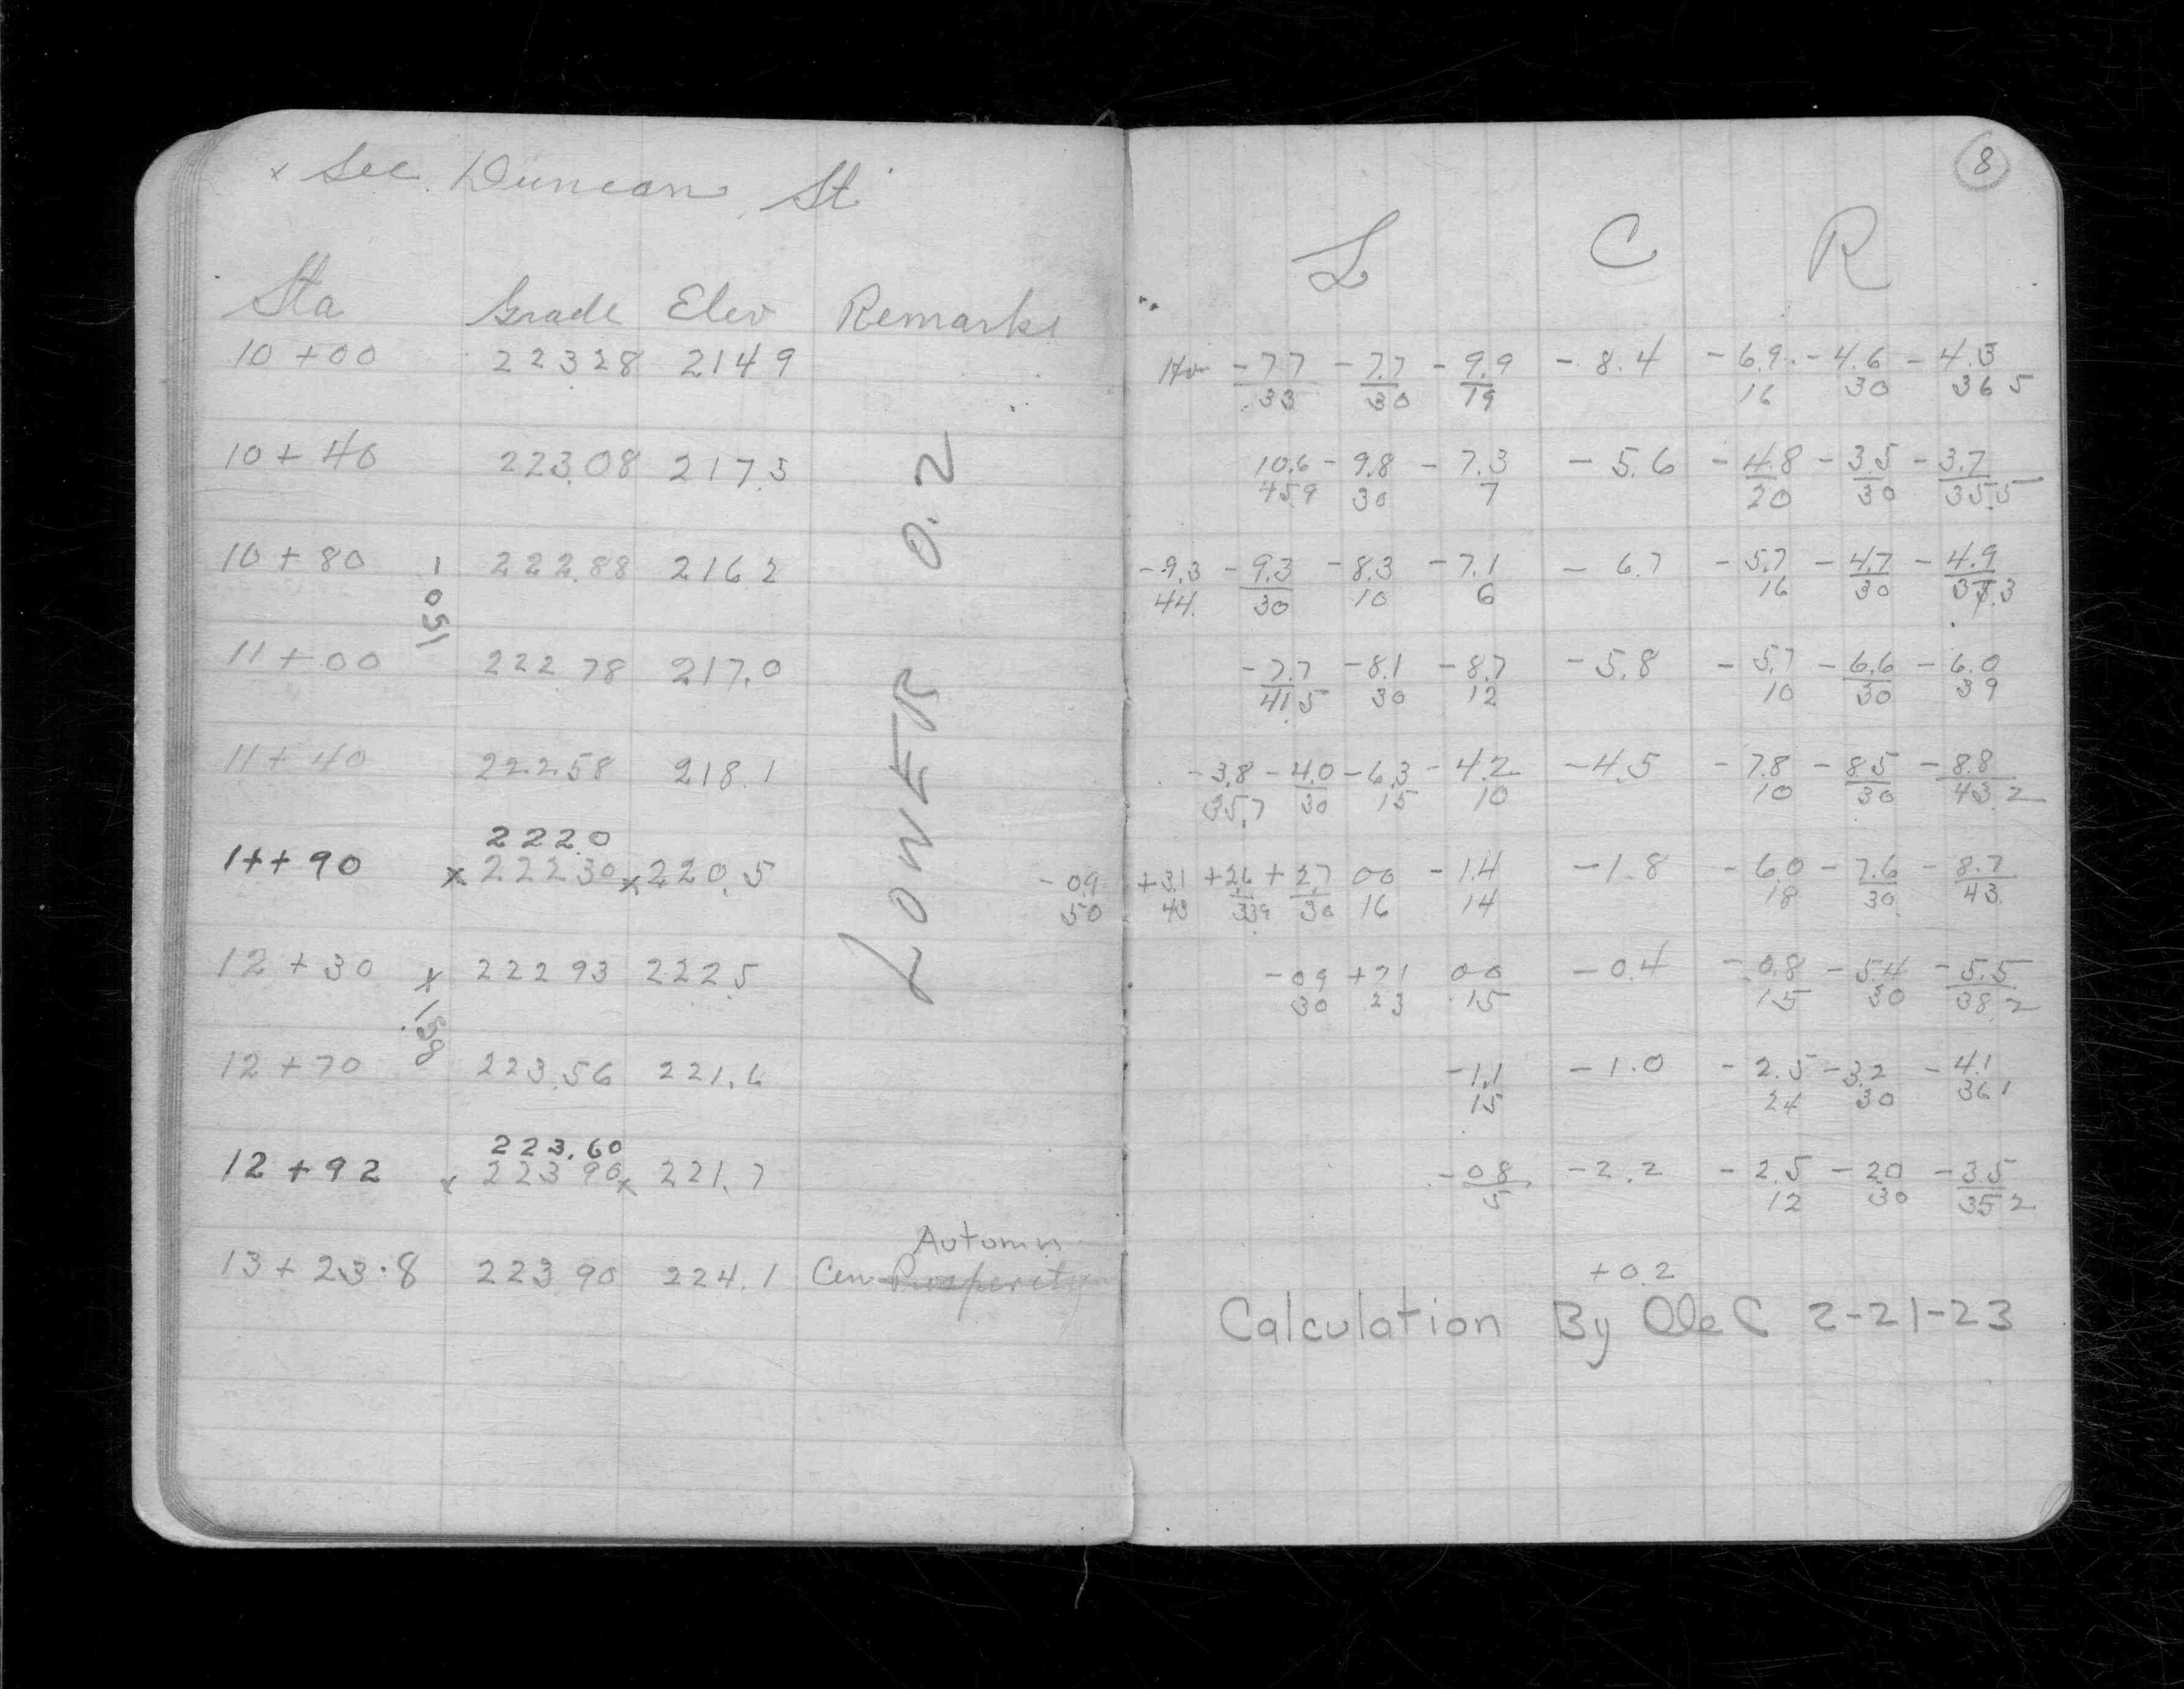 x See Duncan St
Sta Grade Elev Remarks
10 +00 223.28 214 9
10 + 40 223.08 217.5
10 + 80 222.88 216 2
- .50 1
11 + 00 222 78 217.0
11 + 40 222 58 218.1
222.0
11 + 90 x 222 30 x 220.5
12 + 30 x 222 93 222.5
1.58
12 + 70 223.56 221.6
223.60
12 + 92 x 223 90 x 221.7
Autumn
13 + 23.8 223 90 224.1 Cen Prosperity
LOWER 0.2
8
L C R
- 7 7 - 7.7 - 9.9 - 8.4 - 6.9 - 4.6 - 4.3
33 30 19 16 30 36 5
10.6 - 9.8 - 7.3 - 5.6 - 4.8 - 3.5 - 3.7
45 9 30 7 20 30 35.5
- 9.3 - 9.3 - 8.3 - 7.1 - 6.7 - 5.7 - 4.7 - 4.9
44 30 10 6 16 30 37.3
- 7.7 - 8.1 - 8.7 - 5.8 - 5.7 - 6.6 - 6.0
41.5 30 12 10 30 39
- 3.8 - 4.0 - 6.3 - 4.2 - 4.5 - 7.8 - 8 5 - 8.8
35.7 30 15 10 10 30 43.2
- 0.9 + 3.1 + 2.6 + 2.7 0 0 - 1.4 - 1.8 - 6 0 - 7.6 - 8.7
50 43 33 9 30 16 14 18 30 43
- 0 9 + 2 1 0 0 - 0.4 - 0.8 - 5.4 - 5.5
30 23 15 15 30 38.2
- 1.1 - 1.0 - 2.5 - 3.2 - 4.1
15 24 30 36 1
- 0 8 - 2.2 - 2.5 - 2 0 - 3.5
5 12 30 35 2
+ 0.2
Calculation By Ole C 2-21-23